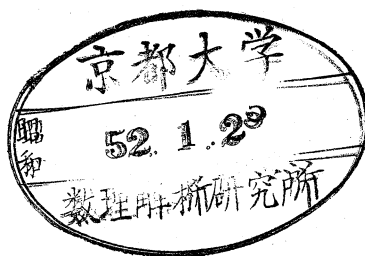 京都大学
昭和
52. 1. 29
数理解析研究所